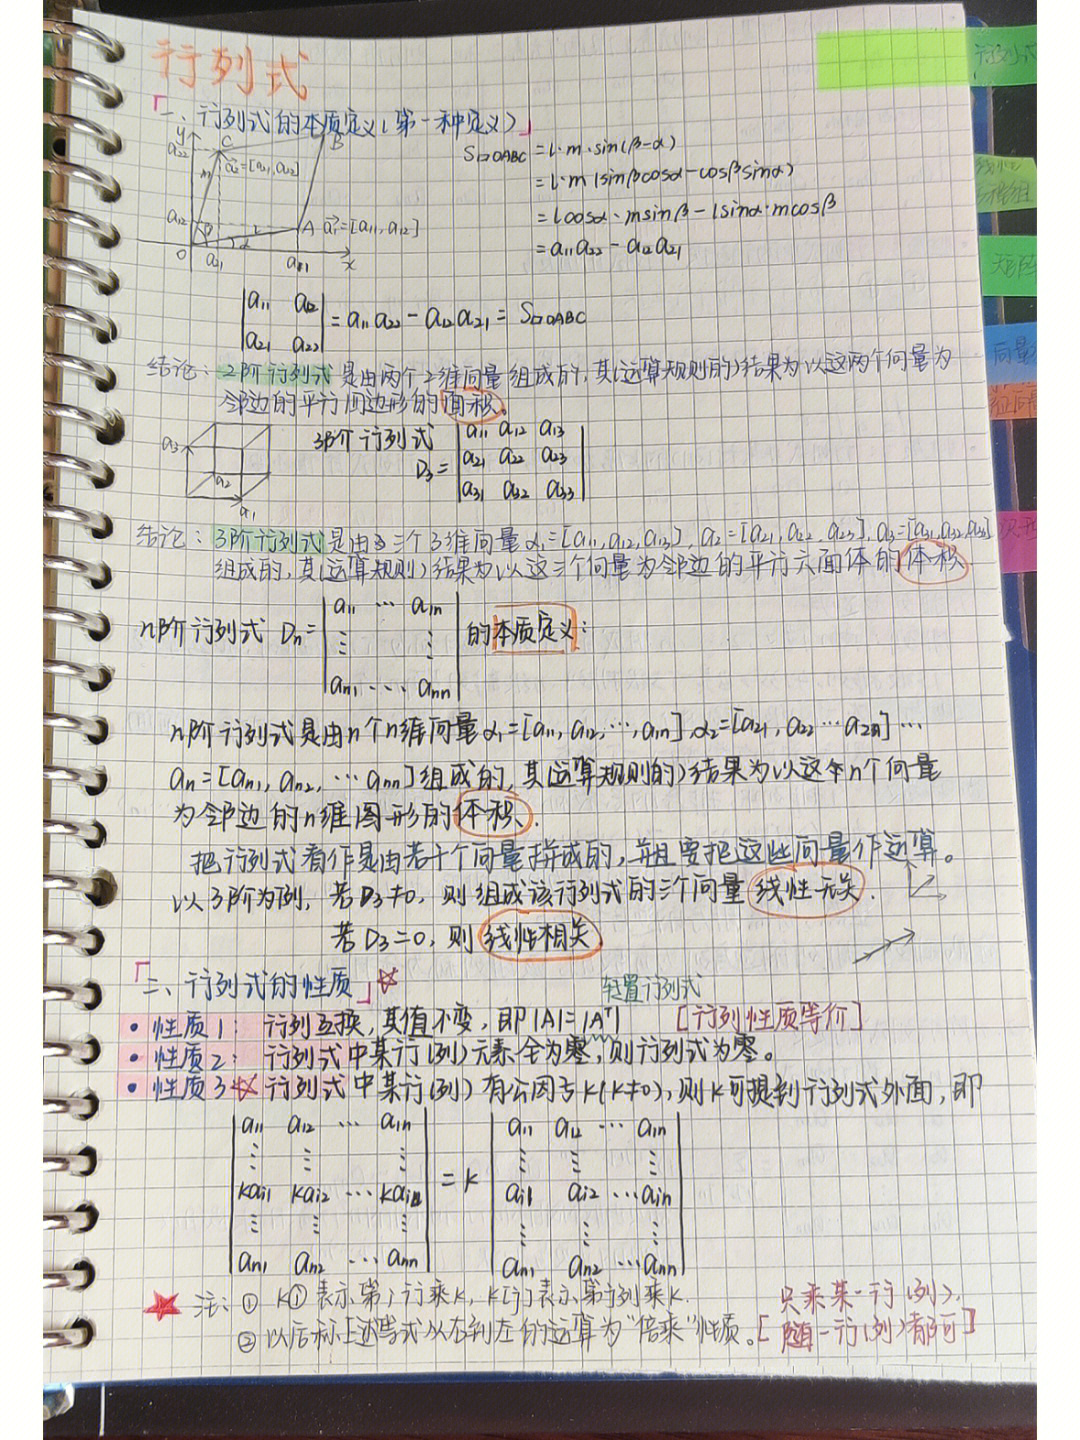 行列式
一、行列式的本质定义(第一种定义)
y
a₂₂ C B
a⃗₂=[a₂₁,a₂₂]
m
a₁₂ β l A a⃗₁=[a₁₁,a₁₂]
α
0 a₂₁ a₁₁ x
S▱OABC = l·m·sin(β-α)
= l·m(sinβcosα-cosβsinα)
= lcosα·msinβ-lsinα·mcosβ
= a₁₁a₂₂-a₁₂a₂₁
|a₁₁ a₁₂|
|a₂₁ a₂₂| = a₁₁a₂₂-a₁₂a₂₁ = S▱OABC
结论:2阶行列式是由两个2维向量组成的,其(运算规则的)结果为以这两个向量为
邻边的平行四边形的面积。
a₃ a₂ a₁
3阶行列式
D₃=
|a₁₁ a₁₂ a₁₃|
|a₂₁ a₂₂ a₂₃|
|a₃₁ a₃₂ a₃₃|
结论:3阶行列式是由三个3维向量α₁=[a₁₁,a₁₂,a₁₃),a₂=[a₂₁,a₂₂,a₂₃],a₃=[a₃₁,a₃₂,a₃₃]
组成的,其(运算规则)结果为以这三个向量为邻边的平行六面体的体积
n阶行列式 Dn= 的本质定义:
|a₁₁ ⋯ a₁n|
|⋮ ⋮|
|an₁ ⋯ ann|
n阶行列式是由n个n维向量α₁=[a₁₁,a₁₂,⋯,a₁n],α₂=[a₂₁,a₂₂⋯a₂n]⋯
an=[an₁,an₂,⋯ann]组成的,其(运算规则的)结果为以这n个向量
为邻边的n维图形的体积.
把行列式看作是由若干个向量拼成的,并且要把这些向量作运算。
以3阶为例,若D₃≠0,则组成该行列式的三个向量线性无关.
若D₃=0,则线性相关
二、行列式的性质
转置行列式
• 性质1:行列互换,其值不变,即|A|=|Aᵀ| [行列性质等价]
• 性质2:行列式中某行(列)元素全为零,则行列式为零。
• 性质3 行列式中某行(列)有公因子k(k≠0),则k可提到行列式外面,即
|a₁₁ a₁₂ ⋯ a₁n| |a₁₁ a₁₂ ⋯ a₁n|
|⋮ ⋮ ⋮| |⋮ ⋮ ⋮|
|kai₁ kai₂ ⋯ kain| = k |ai₁ ai₂ ⋯ ain|
|⋮ ⋮ ⋮| |⋮ ⋮ ⋮|
|an₁ an₂ ⋯ ann| |an₁ an₂ ⋯ann|
注:① k① 表示第i行乘k,k[j]表示第j列乘k.
② 以后称上述等式从右到左的运算为"倍乘"性质。
[只乘某一行(列),
随一行(列)都可]
行列式
矩阵
向量